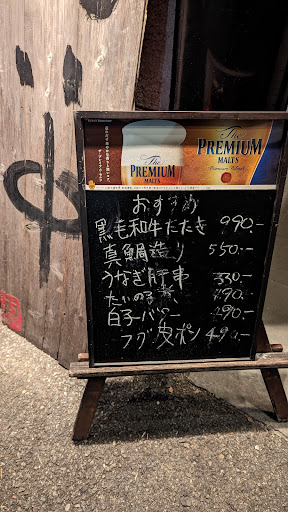 The
PREMIUM
MALTS
The
PREMIUM
MALTS
おすすめ
黒毛和牛たたき 990.-
真鯛造り 550.-
うなぎ肝串 330.-
たいの子煮 290.-
白子バター 290.-
フグ皮ポン 490.-